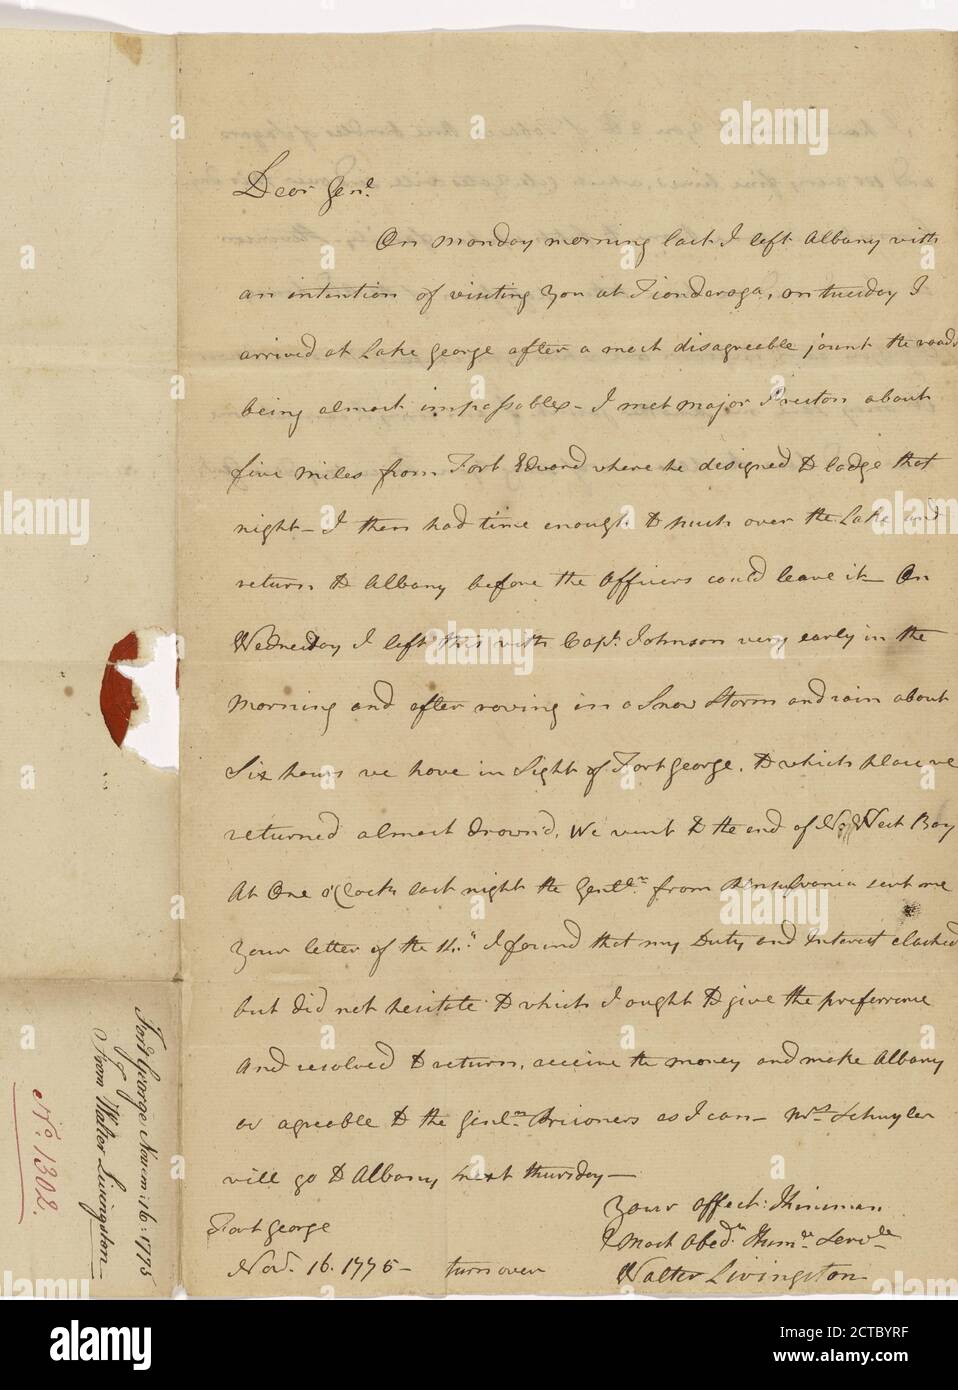 Dear Genl.
On monday morning last I left Albany with
an intention of visiting you at Tionderoga, on tuesday I
arrived at Lake George after a most disagreeable jount the roads
being almost impassable - I met major Preston about
five miles from Fort Edward where he designed to lodge that
night - I then had time enough to push over the Lake and
return to Albany before the Officers could leave it - On
Wednesday I left this with Capt. Johnson very early in the
morning and after roving in a Snow Storm and rain about
Six hours we hove in Sight of Fort George. to which place we
returned almost drown'd, We went to the end of No. West Bay
At One o'Clock last night the Gentlen. from Pensylvania sent me
your letter of the 11th. I found that my Duty and interest clashed
but did not hesitate to which I ought to give the preferrence
And resolved to return, receive the money and make Albany
as agreable to the Genln. Prisoners as I can - Mrs. Schuyler
will go to Albany next thursday -
Your affect: Kinsman
& Most Obedn. Humle Servle
Walter Livingston
Fort George
Nov. 16. 1775 - turn over
Fort George Novem: 16: 1775
from Walter Livingston
No. 1302.
alamy
Image ID: 2CTBYRF
www.alamy.com